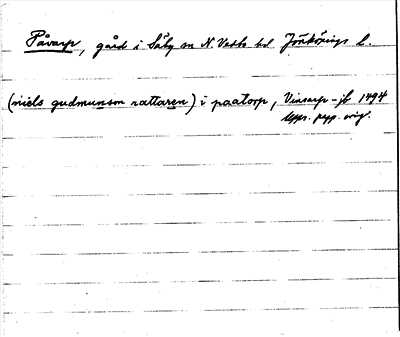 Påvarp, gård i Säby sn N. Vedbo hd Jönköpings l.
(niels gudmunson rattaren) i paatorp, Vinsarp-jb 1494
Upps. ppp. orig.